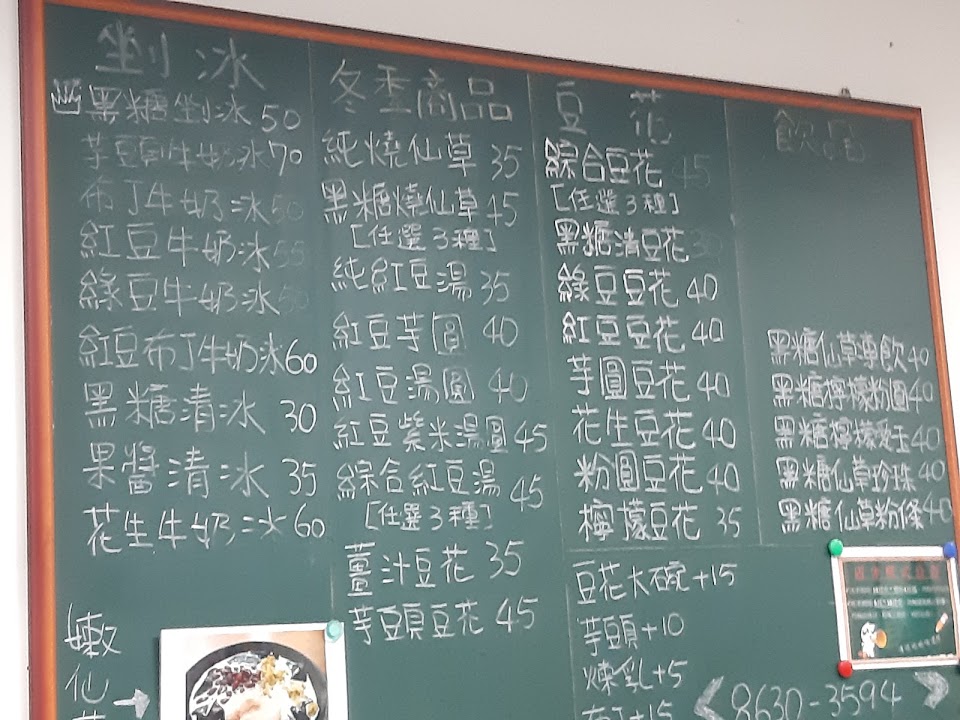 剉冰
黑糖剉冰 50
芋頭牛奶冰 70
布丁牛奶冰 50
紅豆牛奶冰 55
綠豆牛奶冰 50
紅豆布丁牛奶冰 60
黑糖清冰 30
果醬清冰 35
花生牛奶冰 60
嫩
仙
冬季商品
純燒仙草 35
黑糖燒仙草 45
[任選3種]
純紅豆湯 35
紅豆芋圓 40
紅豆湯圓 40
紅豆紫米湯圓 45
綜合紅豆湯 45
[任選3種]
薑汁豆花 35
芋頭豆花 45
豆花
綜合豆花 45
[任選3種]
黑糖清豆花 30
綠豆豆花 40
紅豆豆花 40
芋圓豆花 40
花生豆花 40
粉圓豆花 40
檸檬豆花 35
豆花大碗+15
芋頭+10
煉乳+5
布丁+15
飲品
黑糖仙草凍飲 40
黑糖檸檬粉圓 40
黑糖檸檬愛玉 40
黑糖仙草珍珠 40
黑糖仙草粉條 40
8630-3594